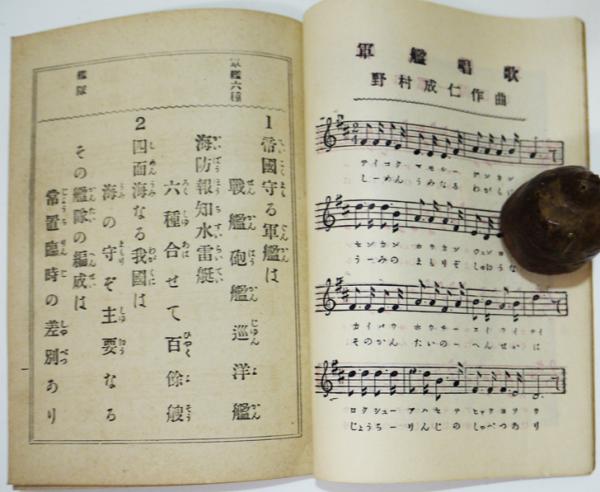 軍艦唱歌
野村成仁作曲
テイコクマモルー グンカン
しーめんうみなる わがくに
センカン ホウカン
うーみの まもりぞ しゅような
カイバウ ホウチースイライテイ
そのかんたいのーへんせいは
ロクシューアハセテ ヒャクヨソウ
じょうちーりんじの しゃべつあり
軍艦六種
1 帝國守る軍艦は
戰艦砲艦巡洋艦
海防報知水雷艇
六種合せて百餘艘
艦隊
2 四面海なる我國は
海の守ぞ主要なる
その艦隊の編成は
常置臨時の差別あり